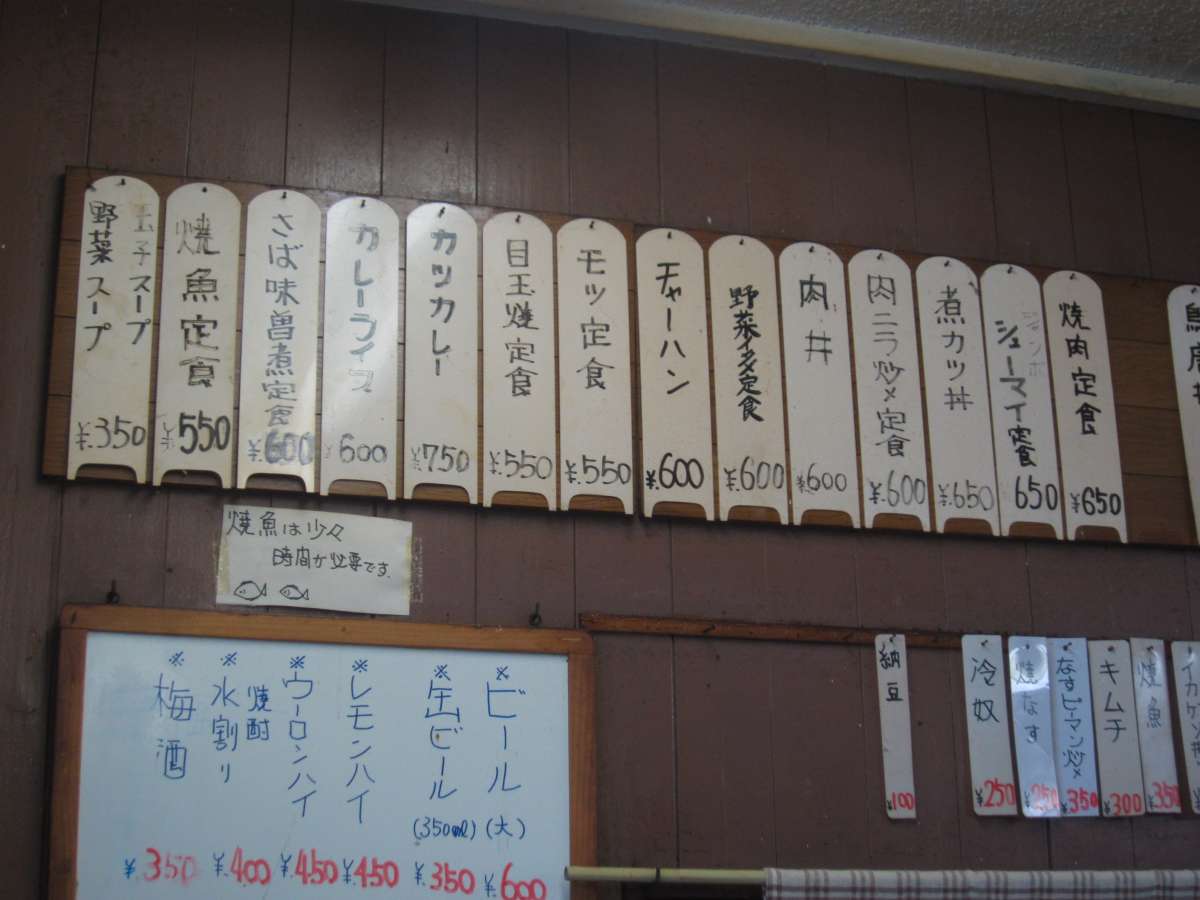 焼肉定食
¥650
ジャンボ
シューマイ定食
650
煮カツ丼
¥650
肉ニラ炒メ定食
¥600
肉丼
¥600
野菜イタメ定食
¥600
チャーハン
¥600
モツ定食
¥550
目玉焼定食
¥550
カツカレー
¥750
カレーライス
¥600
さば味噌煮定食
¥600
焼魚定食
¥550
玉子スープ
野菜スープ
¥350
焼魚は少々
時間が必要です.
※ビール
(大)
¥600
※缶ビール
(350ml)
¥350
※レモンハイ
¥450
※ウーロンハイ
¥450
焼酎
※水割り
¥400
※梅酒
¥350
焼魚
¥350
キムチ
¥300
なすピーマン炒メ
¥350
焼なす
¥250
冷奴
¥250
納豆
¥100